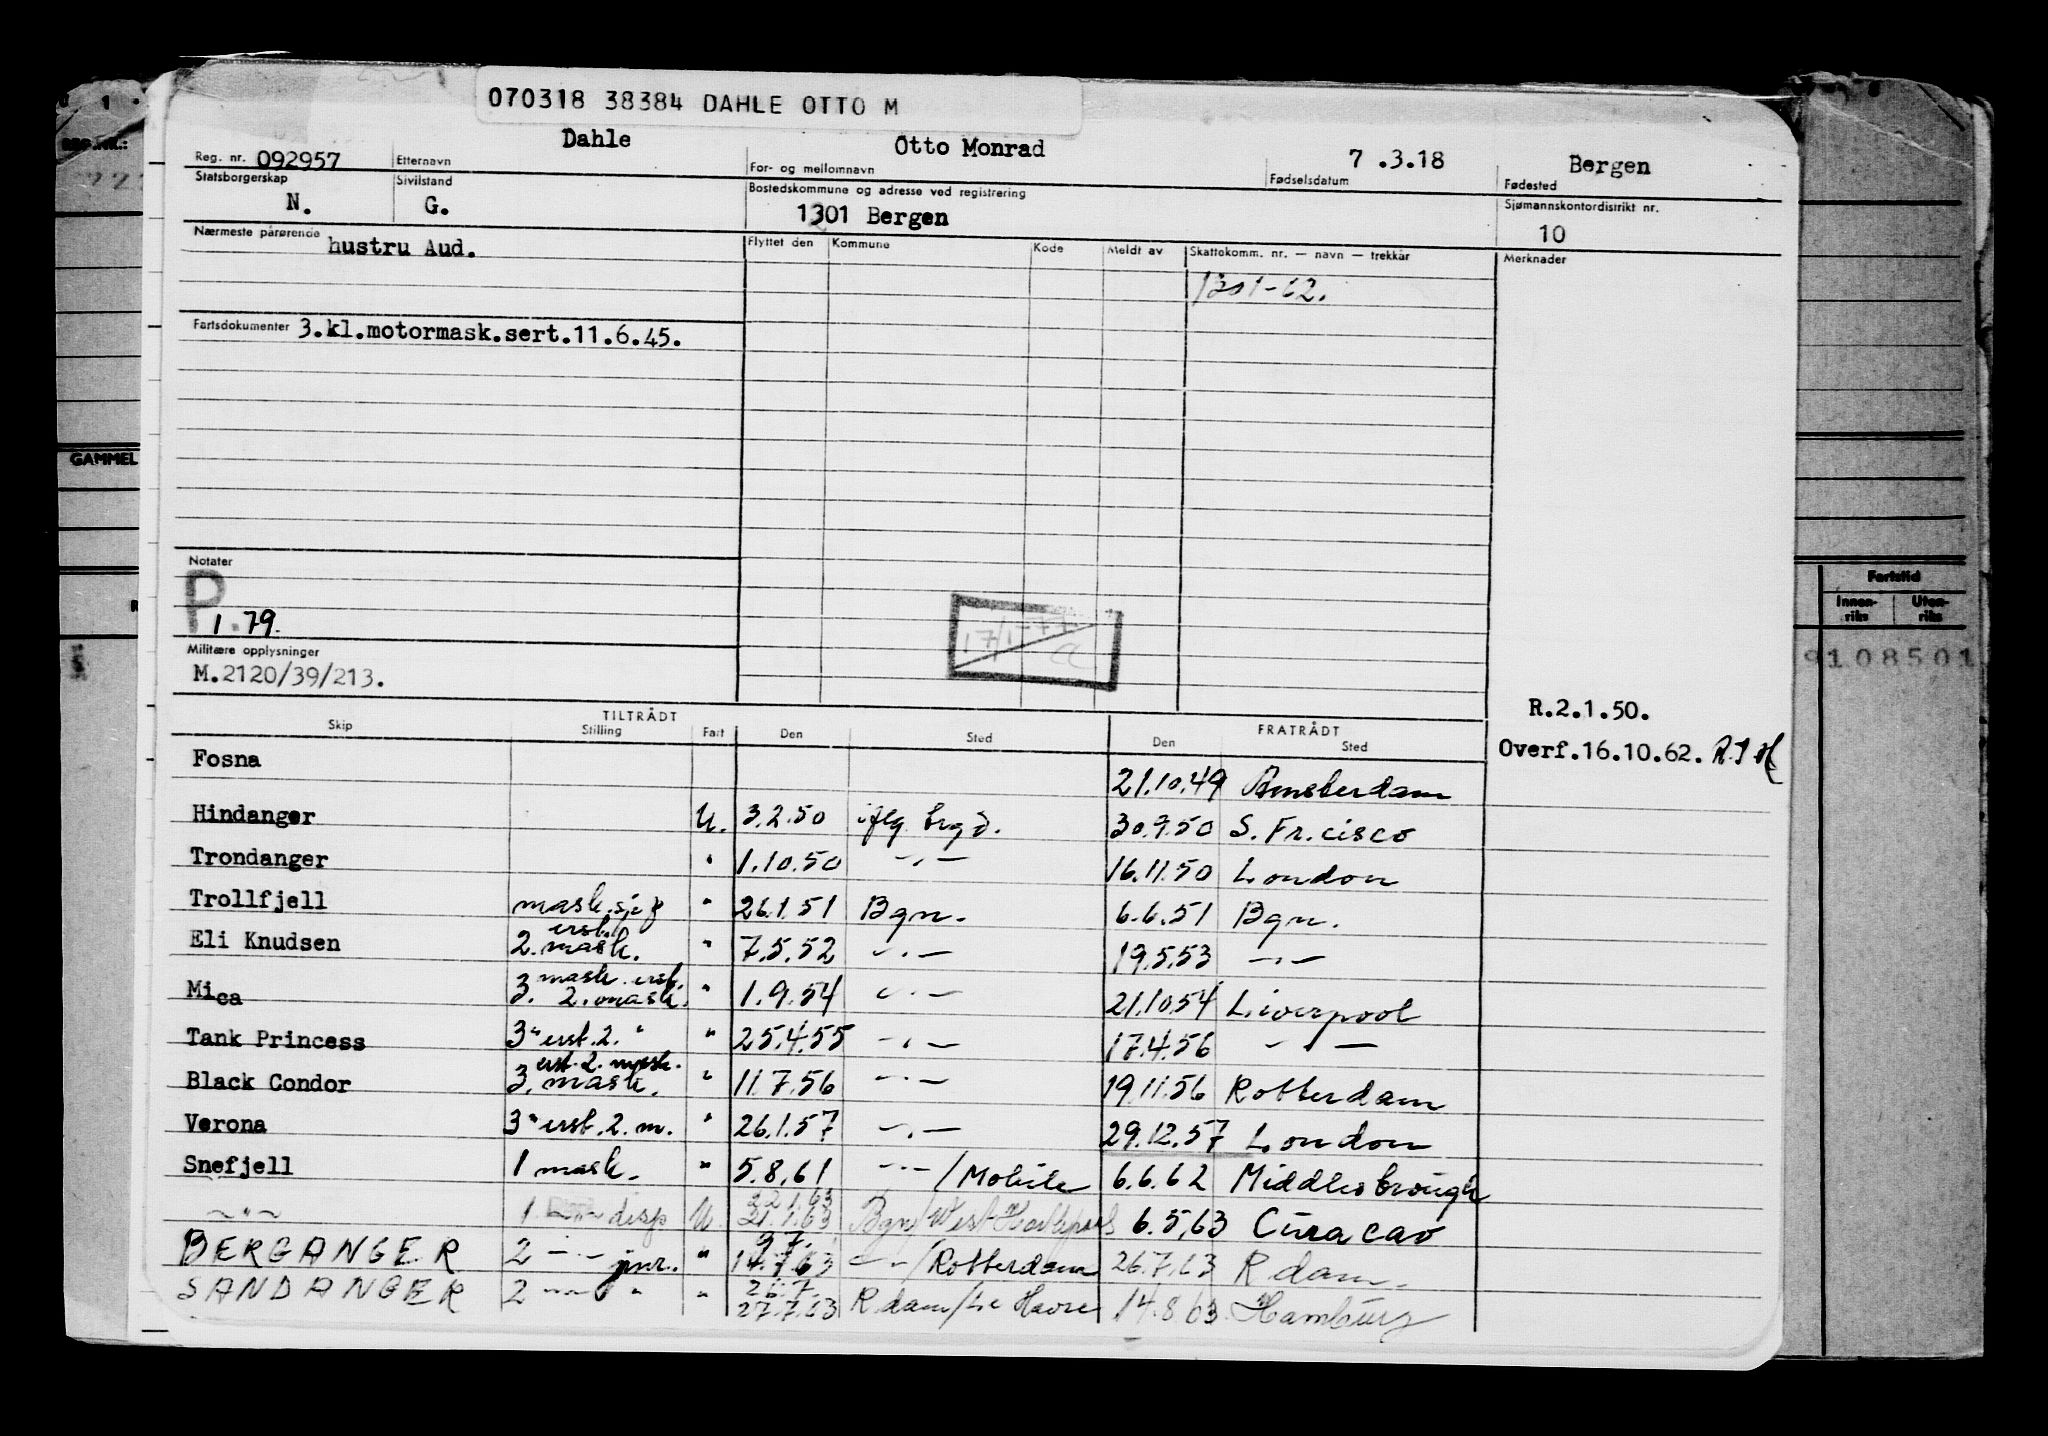 070318 38384 DAHLE OTTO M
Reg. nr. 092957 Etternavn Dahle For- og mellomnavn Otto Monrad Fødselsdatum 7 .3.18 Fødested Bergen
Statsborgerskap N. Sivilstand G. Bostedskommune og adresse ved registrering 1301 Bergen Sjømannskontordistrikt nr. 10
Nærmeste pårørende hustru Aud. Flyttet den Kommune Kode Meldt av Skattekomm. nr. — navn — trekkår Merknader
1301-62.
Fartsdokumenter 3.kl.motormask.sert.11.6.45.
Notater
P 1.79.
17/1-77
Militære opplysninger
M.2120/39/213.
R.2.1.50.
Overf.16.10.62.
TILTRÅDT FRATRÅDT
Skip Stilling Fart Den Sted Den Sted
Fosna 21.10.49 Amsterdam
Hindanger U. 3.2.50 iflg. 30.9.50 S. Fr.cisco
Trondanger " 1.10.50 -"- 16.11.50 London
Trollfjell mask. " 26.1.51 Bgn. 6.6.51 Bgn.
Eli Knudsen erst. 2. mask. " 7.5.52 -"- 19.5.53 -"-
Mica 3. mask. erst. 2. mask. " 1.9.54 -"- 21.10.54 Liverpool
Tank Princess 3 " erst. 2. " " 25.4.55 -"- 17.4.56 -"-
Black Condor 3. mask. erst. 2. mask. " 11.7.56 -"- 19.11.56 Rotterdam
Verona 3 " erst. 2. m. " 26.1.57 -"- 29.12.57 London
Snefjell 1 mask. " 5.8.61 -"- / Mobile 6.6.62 Middlesbrough
-"- 1. disp U. 22.1.63 21.1.63 Bgn/West Hartlepool 6.5.63 Curacao
BERGANGER 2 -"- jnr. " 9.7. 14.7.63 -"- /Rotterdam 26.7.63 R dam.
SANDANGER 2 -"- " " 26.7. 27.7.63 R.dam/Le Havre 14.8.63 Hamburg
GAMMEL
Fartstid
Innen-riks Uten-riks
9108501